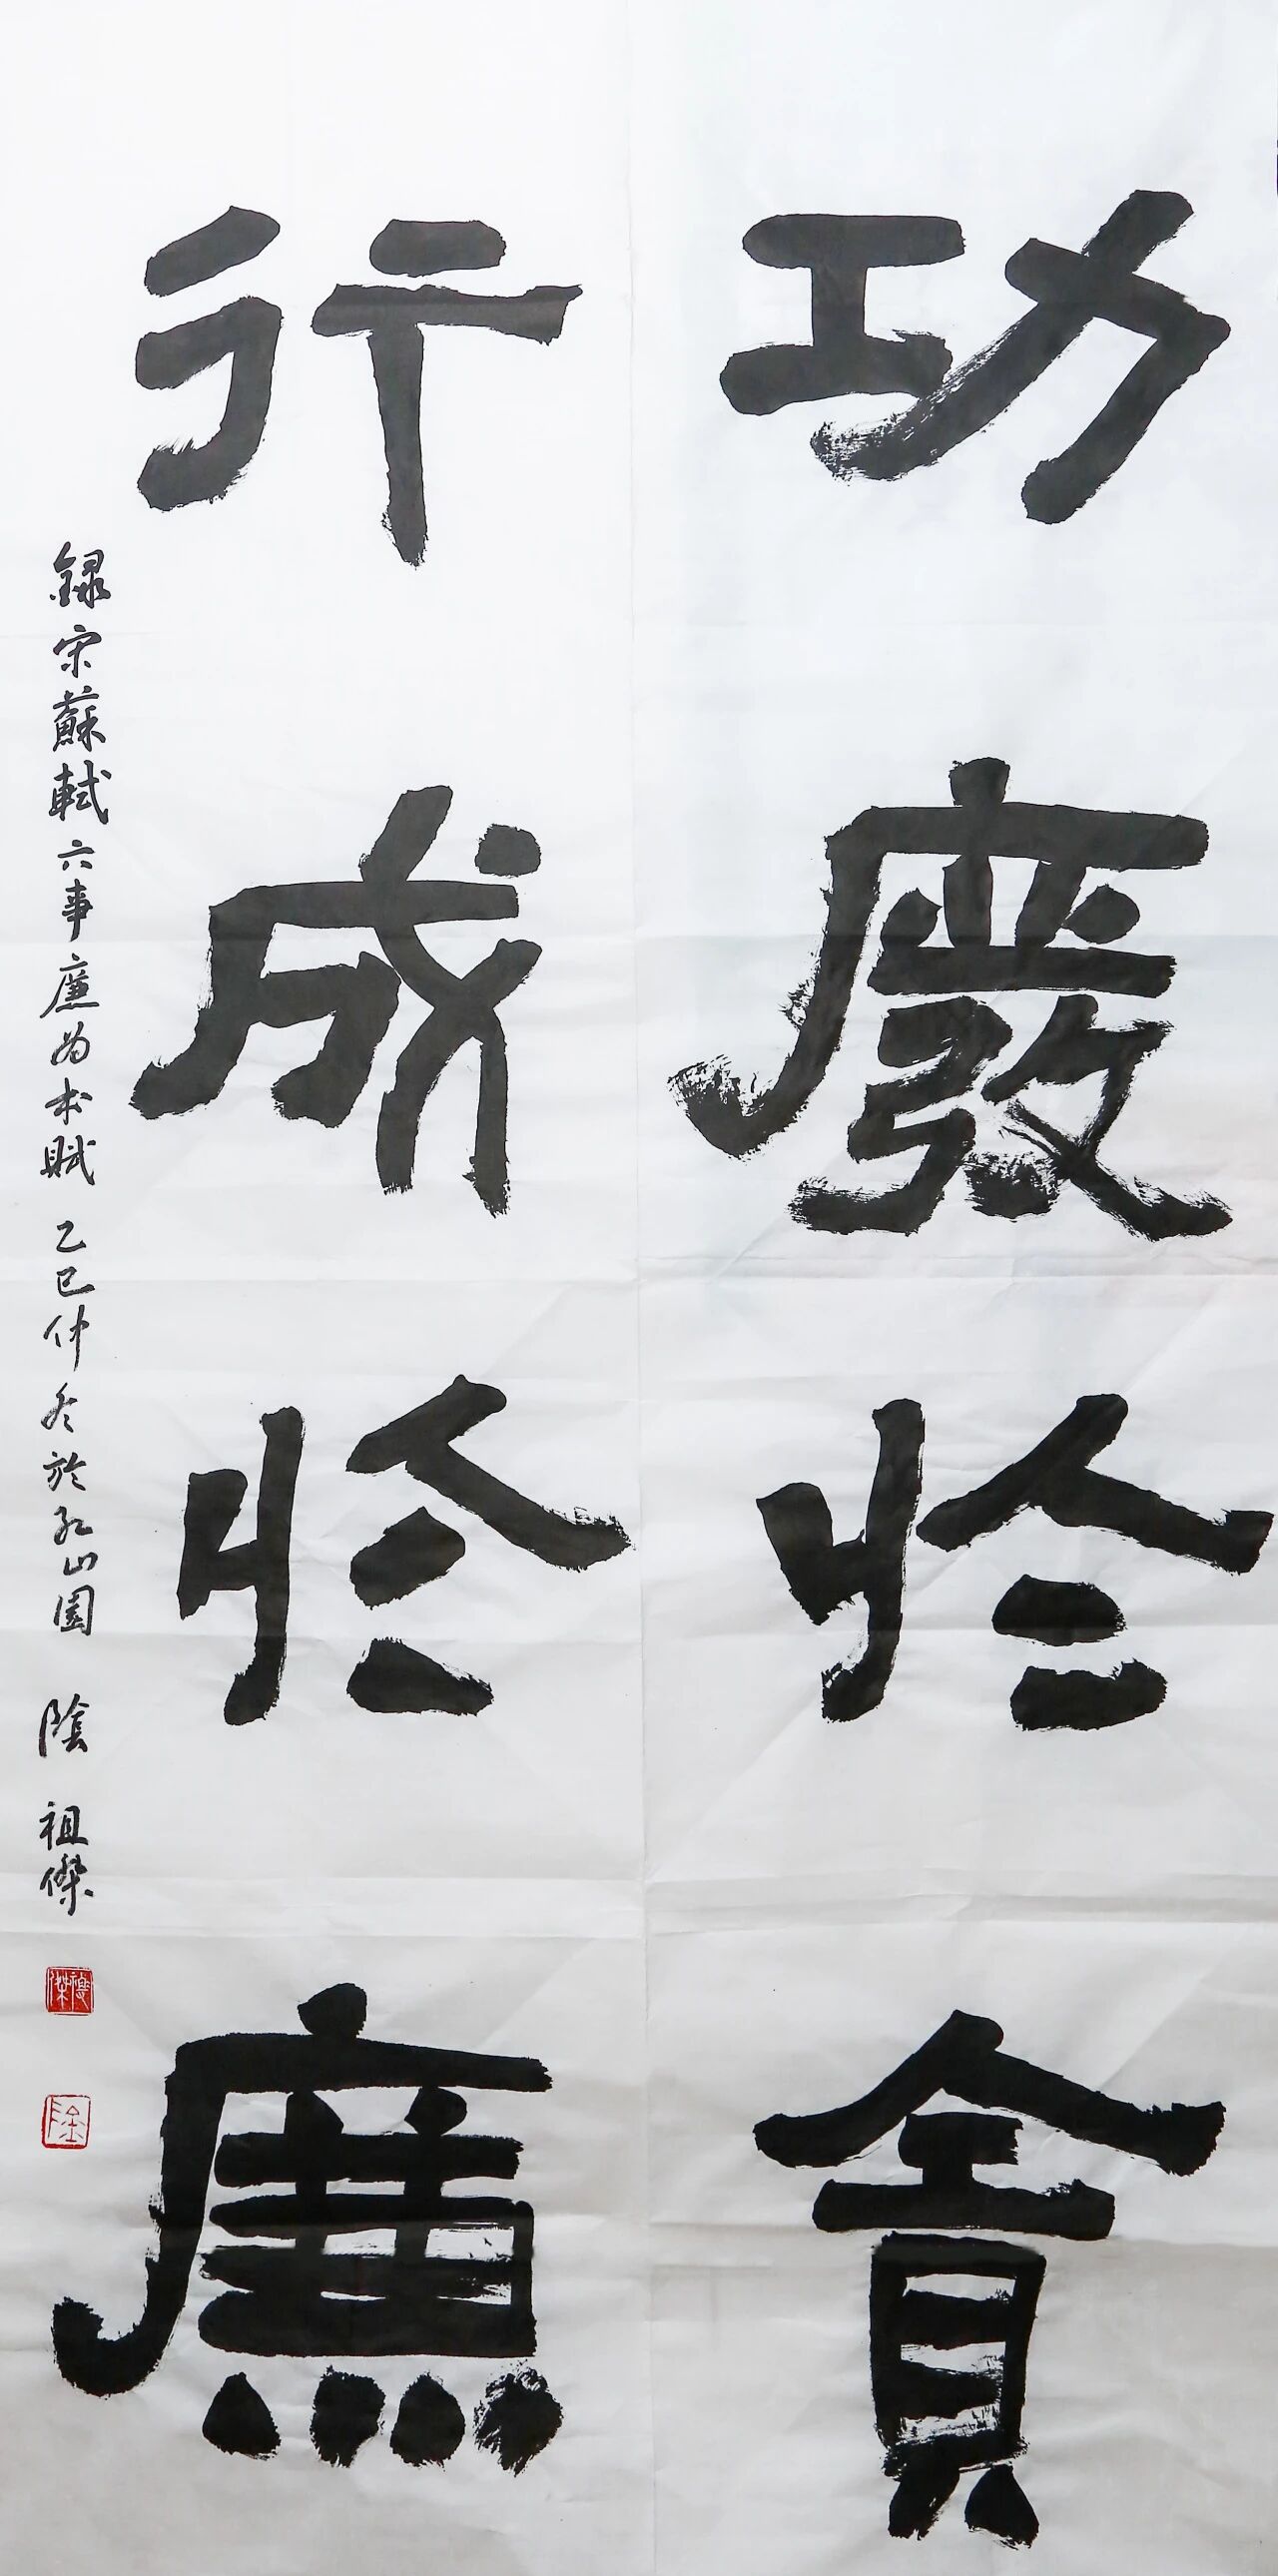 功廢於貪
行成於廉
録宋蘇軾六事廉為本賦 乙巳仲冬於孔山園 陰 祖傑